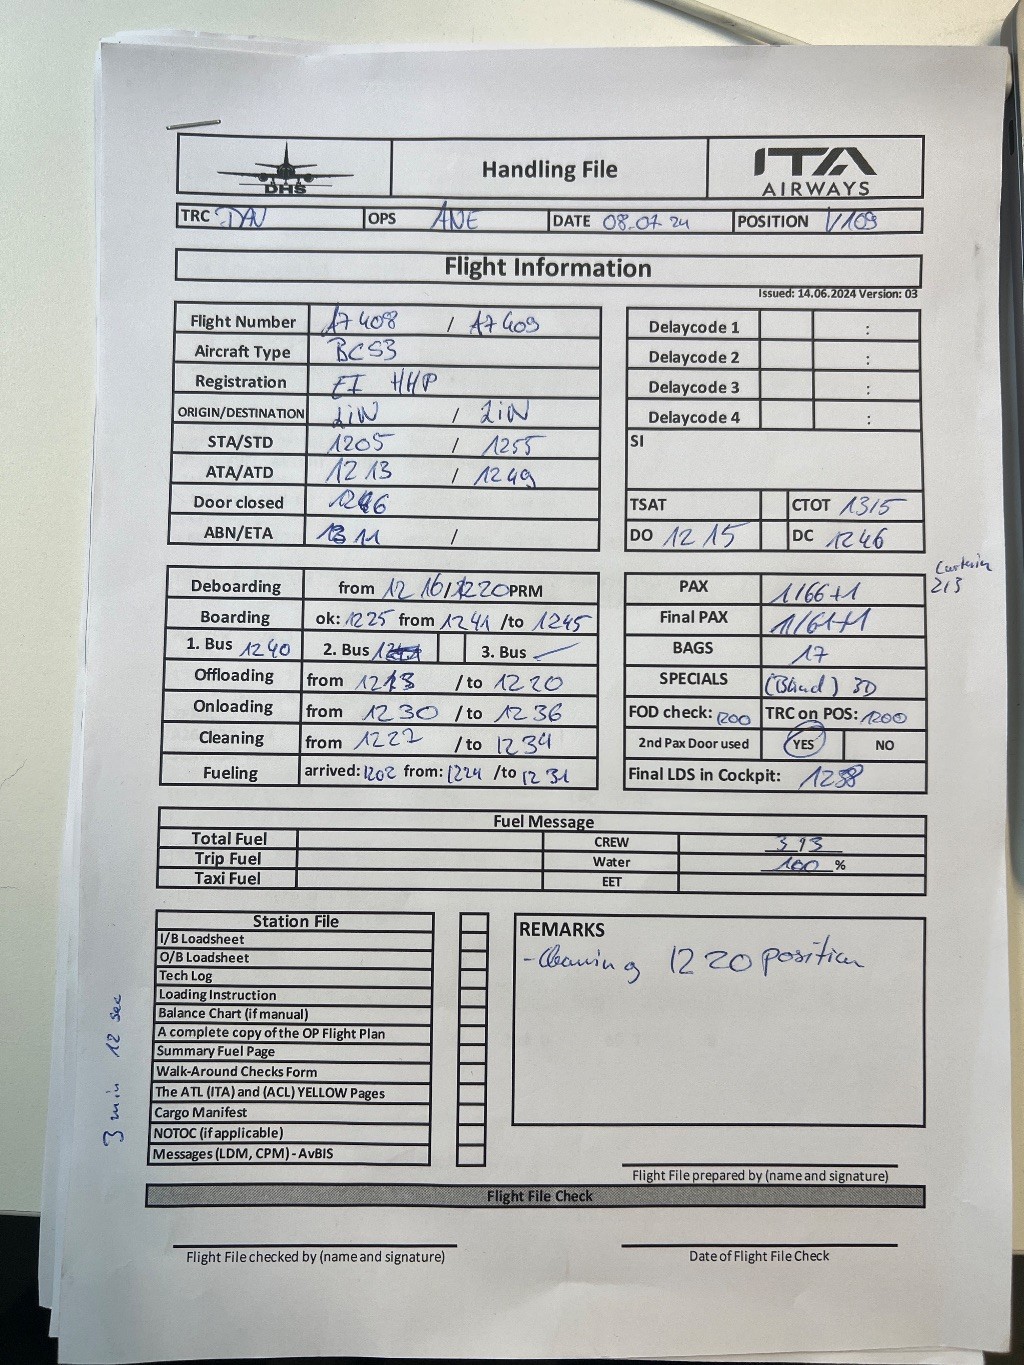 DHS
Handling File
ITA
AIRWAYS
TRC DAV OPS ANE DATE 08.07 24 POSITION V109
Flight Information
Issued: 14.06.2024 Version: 03
Flight Number AZ 408 / AZ 409
Aircraft Type BCS3
Registration EI HHP
ORIGIN/DESTINATION LiN / LiN
STA/STD 1205 / 1255
ATA/ATD 1213 / 1249
Door closed 1246
ABN/ETA 1311 /
Delaycode 1 :
Delaycode 2 :
Delaycode 3 :
Delaycode 4 :
SI
TSAT CTOT 1315
DO 1215 DC 1246
Deboarding from 1216/1220 PRM
Boarding ok: 1225 from 1241 /to 1245
1. Bus 1240 2. Bus 3. Bus
Offloading from 1213 /to 1220
Onloading from 1230 /to 1236
Cleaning from 1222 /to 1234
Fueling arrived: 1202 from: 1224 /to 1231
PAX 1/66+1
Final PAX 1/61+1
BAGS 17
SPECIALS (Blind) 3D
FOD check: 1200 TRC on POS: 1200
2nd Pax Door used YES NO
Final LDS in Cockpit: 1238
213
Fuel Message
Total Fuel CREW
Trip Fuel Water 100 %
Taxi Fuel EET
Station File
I/B Loadsheet
O/B Loadsheet
Tech Log
Loading Instruction
Balance Chart (if manual)
A complete copy of the OP Flight Plan
Summary Fuel Page
Walk-Around Checks Form
The ATL (ITA) and (ACL) YELLOW Pages
Cargo Manifest
NOTOC (if applicable)
Messages (LDM, CPM) - AvBIS
REMARKS
- Cleaning 1220 position
3 min 12 sec
Flight File prepared by (name and signature)
Flight File Check
Flight File checked by (name and signature)
Date of Flight File Check